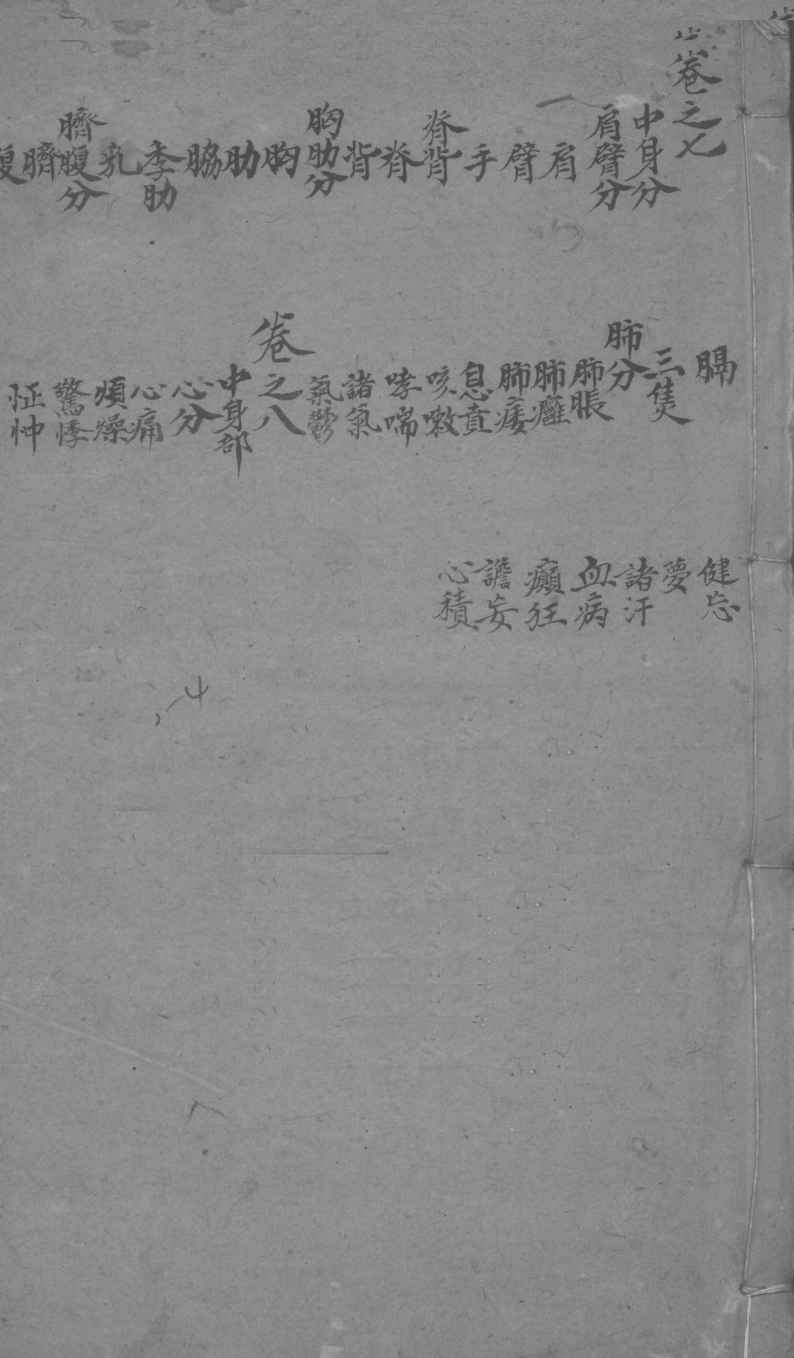 卷之七
中身分
肩臂分
肩
臂
手
脊背
脊
背
胸肋分
胸
肋
脇
季肋
乳
臍腹分
臍
腹
膈
三隻
肺分
肺脹
肺癰
肺痿
息賁
咳嗽
哮喘
諸氣
氣鬱
卷之八
中身部
心分
心痛
煩燥
驚悸
怔忡
健忘
夢
諸汗
血病
癲狂
譫妄
心積